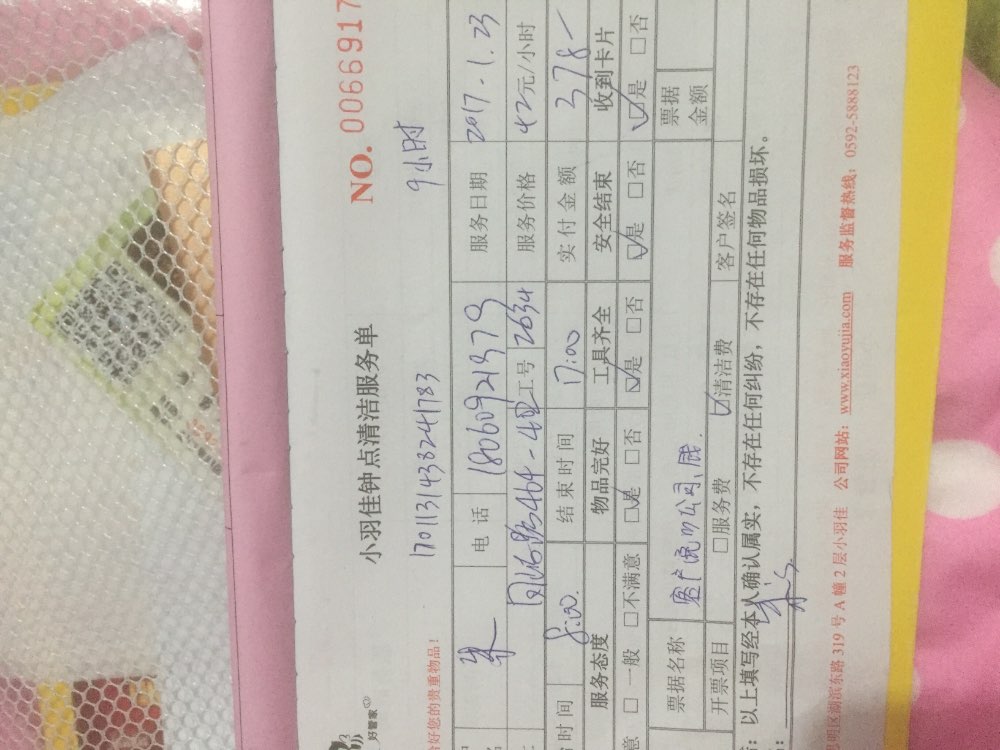 好管家
小羽佳钟点清洁服务单 NO. 0066917
1701131438241783 9小时
好您的贵重物品！
朱 电话 18060921979 服务日期 2017.1.23
464-4 工号 2634 服务价格 42元/小时
时间 8:00 结束时间 17:00 实付金额 378-
服务态度 物品完好 工具齐全 安全结束 收到卡片
意 □一般 □不满意 ☑是 □否 ☑是 □否 ☑是 □否 ☑是 □否
票据名称 票据金额
开票项目 □服务费 ☑清洁费 客户签名
：以上填写经本人确认属实，不存在任何纠纷，不存在任何物品损坏。
明区湖滨东路319号A幢2层小羽佳 公司网站：www.xiaoyujia.com 服务监督热线：0592-5888123